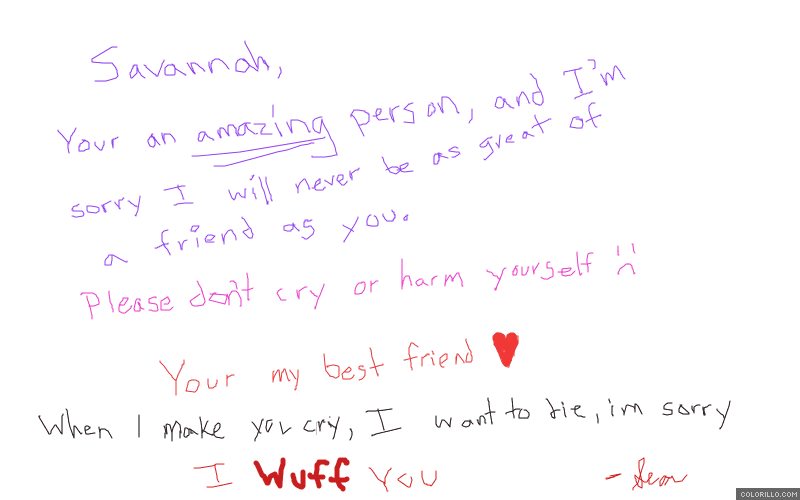 Savannah,
Your an amazing person, and I'm
sorry I will never be as great of
a friend as you.
Please don't cry or harm yourself :(
Your my best friend ♥
When I make you cry, I want to die, im sorry
I Wuff YOU - Sean
COLORILLO.COM